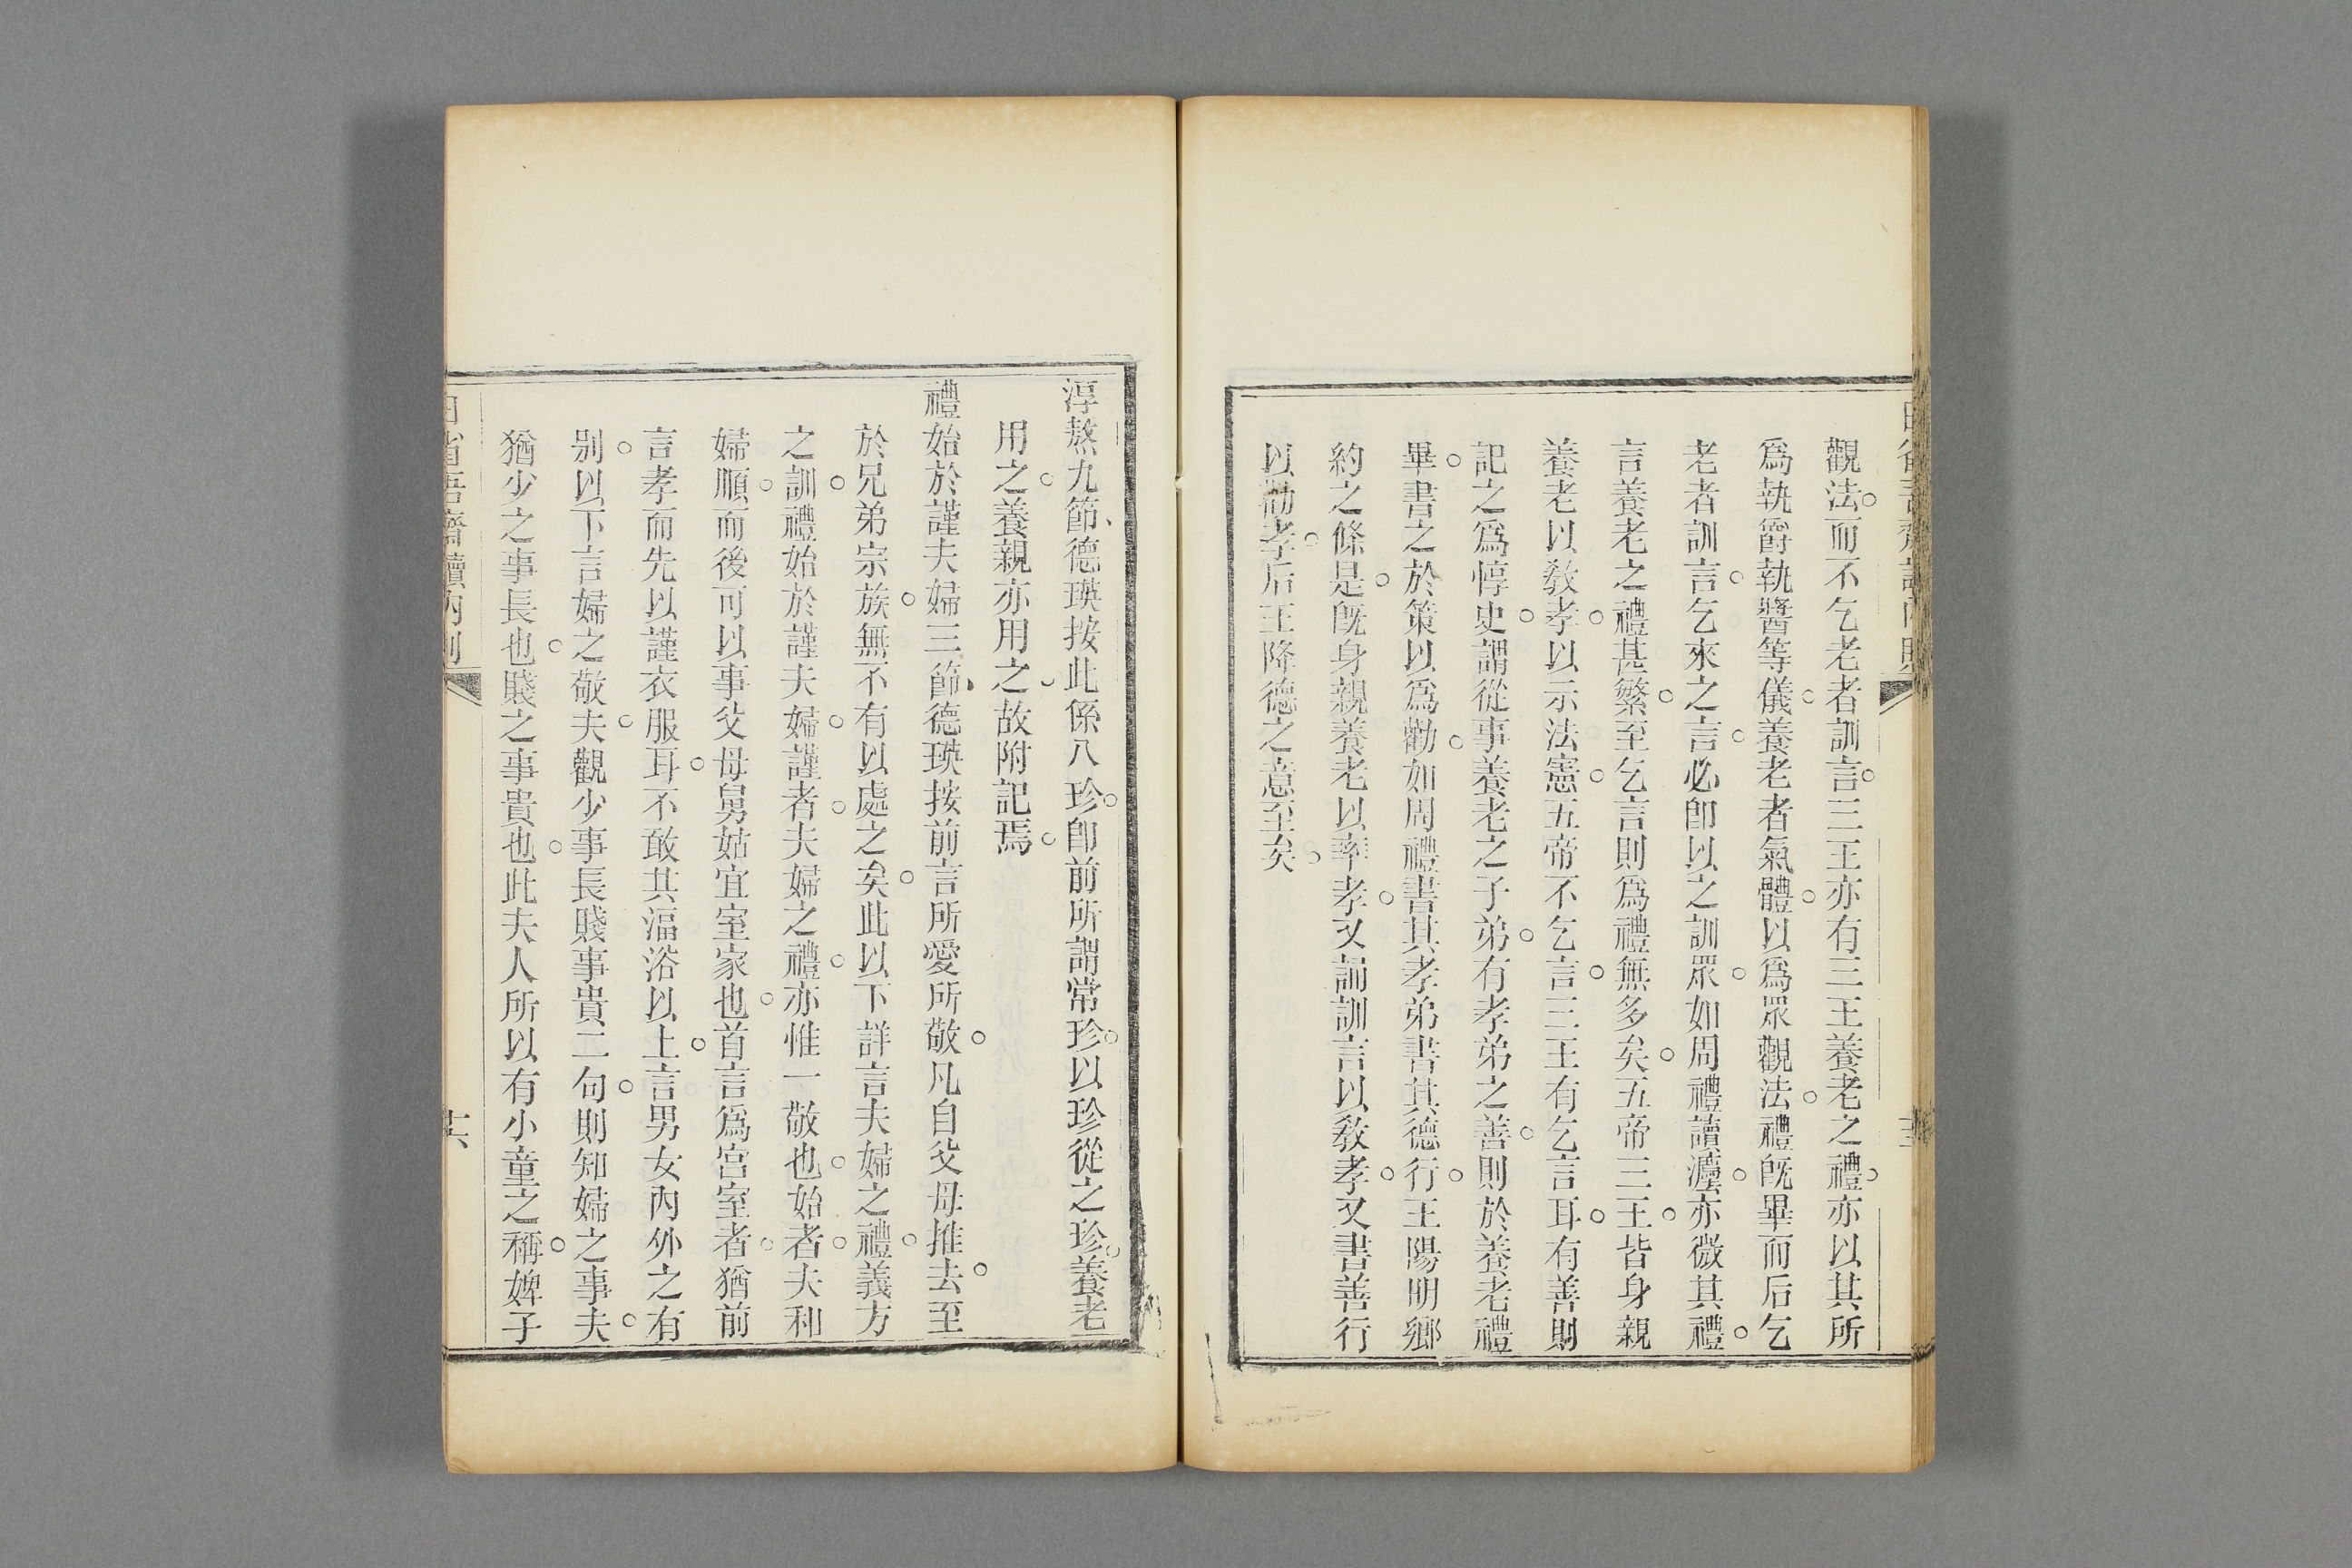 觀法。而不乞老者訓言。三王亦有三王養老之禮。亦以其所
爲執爵執醬等儀。養老者氣體。以爲眾觀法。禮旣畢而后乞
老者訓言。乞來之言。必卽以之訓眾。如周禮讀灋。亦微其禮。
言養老之禮甚繁。至乞言則爲禮無多矣。五帝三王。皆身親
養老以敎孝。以示法憲。五帝不乞言。三王有乞言耳。有善則
記之爲惇史。謂從事養老之子弟。有孝弟之善。則於養老禮
畢。書之於策以爲勸。如周禮書其孝弟書其德行。王陽明鄉
約之條是。旣身親養老以率孝。又誦訓言以敎孝。又書善行
以勸孝。后王降德之意至矣。
淳熬九節、德瑛按此係八珍。卽前所謂常珍。以珍從之珍。養老
用之。養親亦用之。故附記焉。
禮始於謹夫婦三節、德瑛按前言所愛所敬。凡自父母推去。至
於兄弟宗族。無不有以處之矣。此以下詳言夫婦之禮。義方
之訓。禮始於謹夫婦。謹者。夫婦之禮。亦惟一敬也。始者。夫和
婦順。而後可以事父母舅姑宜室家也。首言爲宮室者。猶前
言孝而先以謹衣服耳。不敢共湢浴以上。言男女內外之有
別。以下言婦之敬夫。觀少事長賤事貴二句。則知婦之事夫。
猶少之事長也。賤之事貴也。此夫人所以有小童之稱。婢子
日省吾齋讀內則